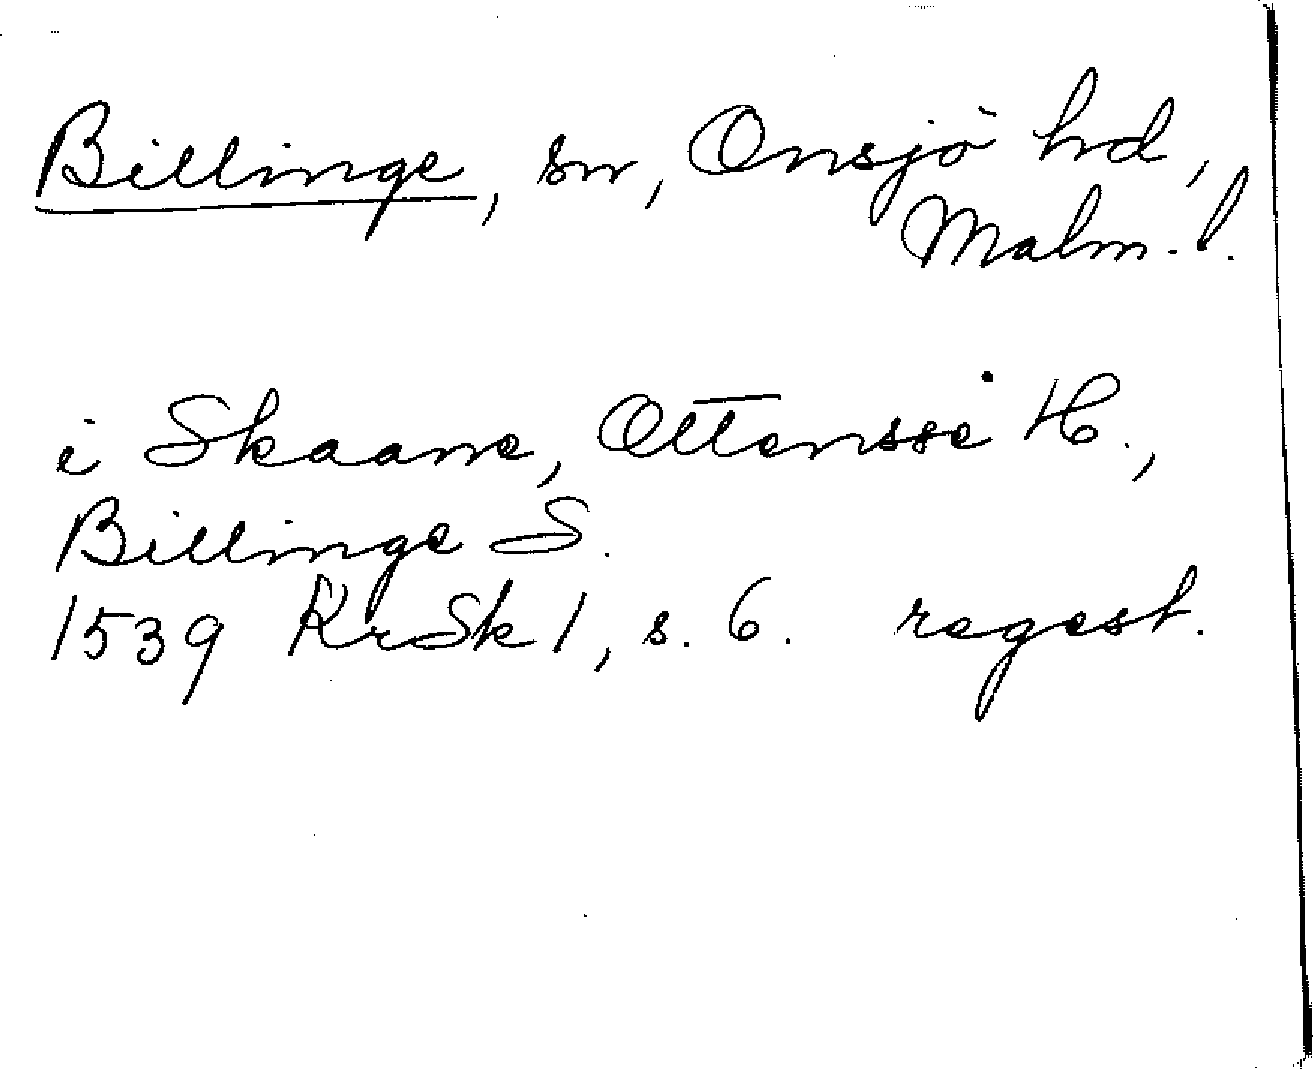 Billinge, sn, Onsjö hd,
Malm. l.
i Skaane, Ottensse H.,
Billinge S.
1539 KrSk 1, s. 6. regest.